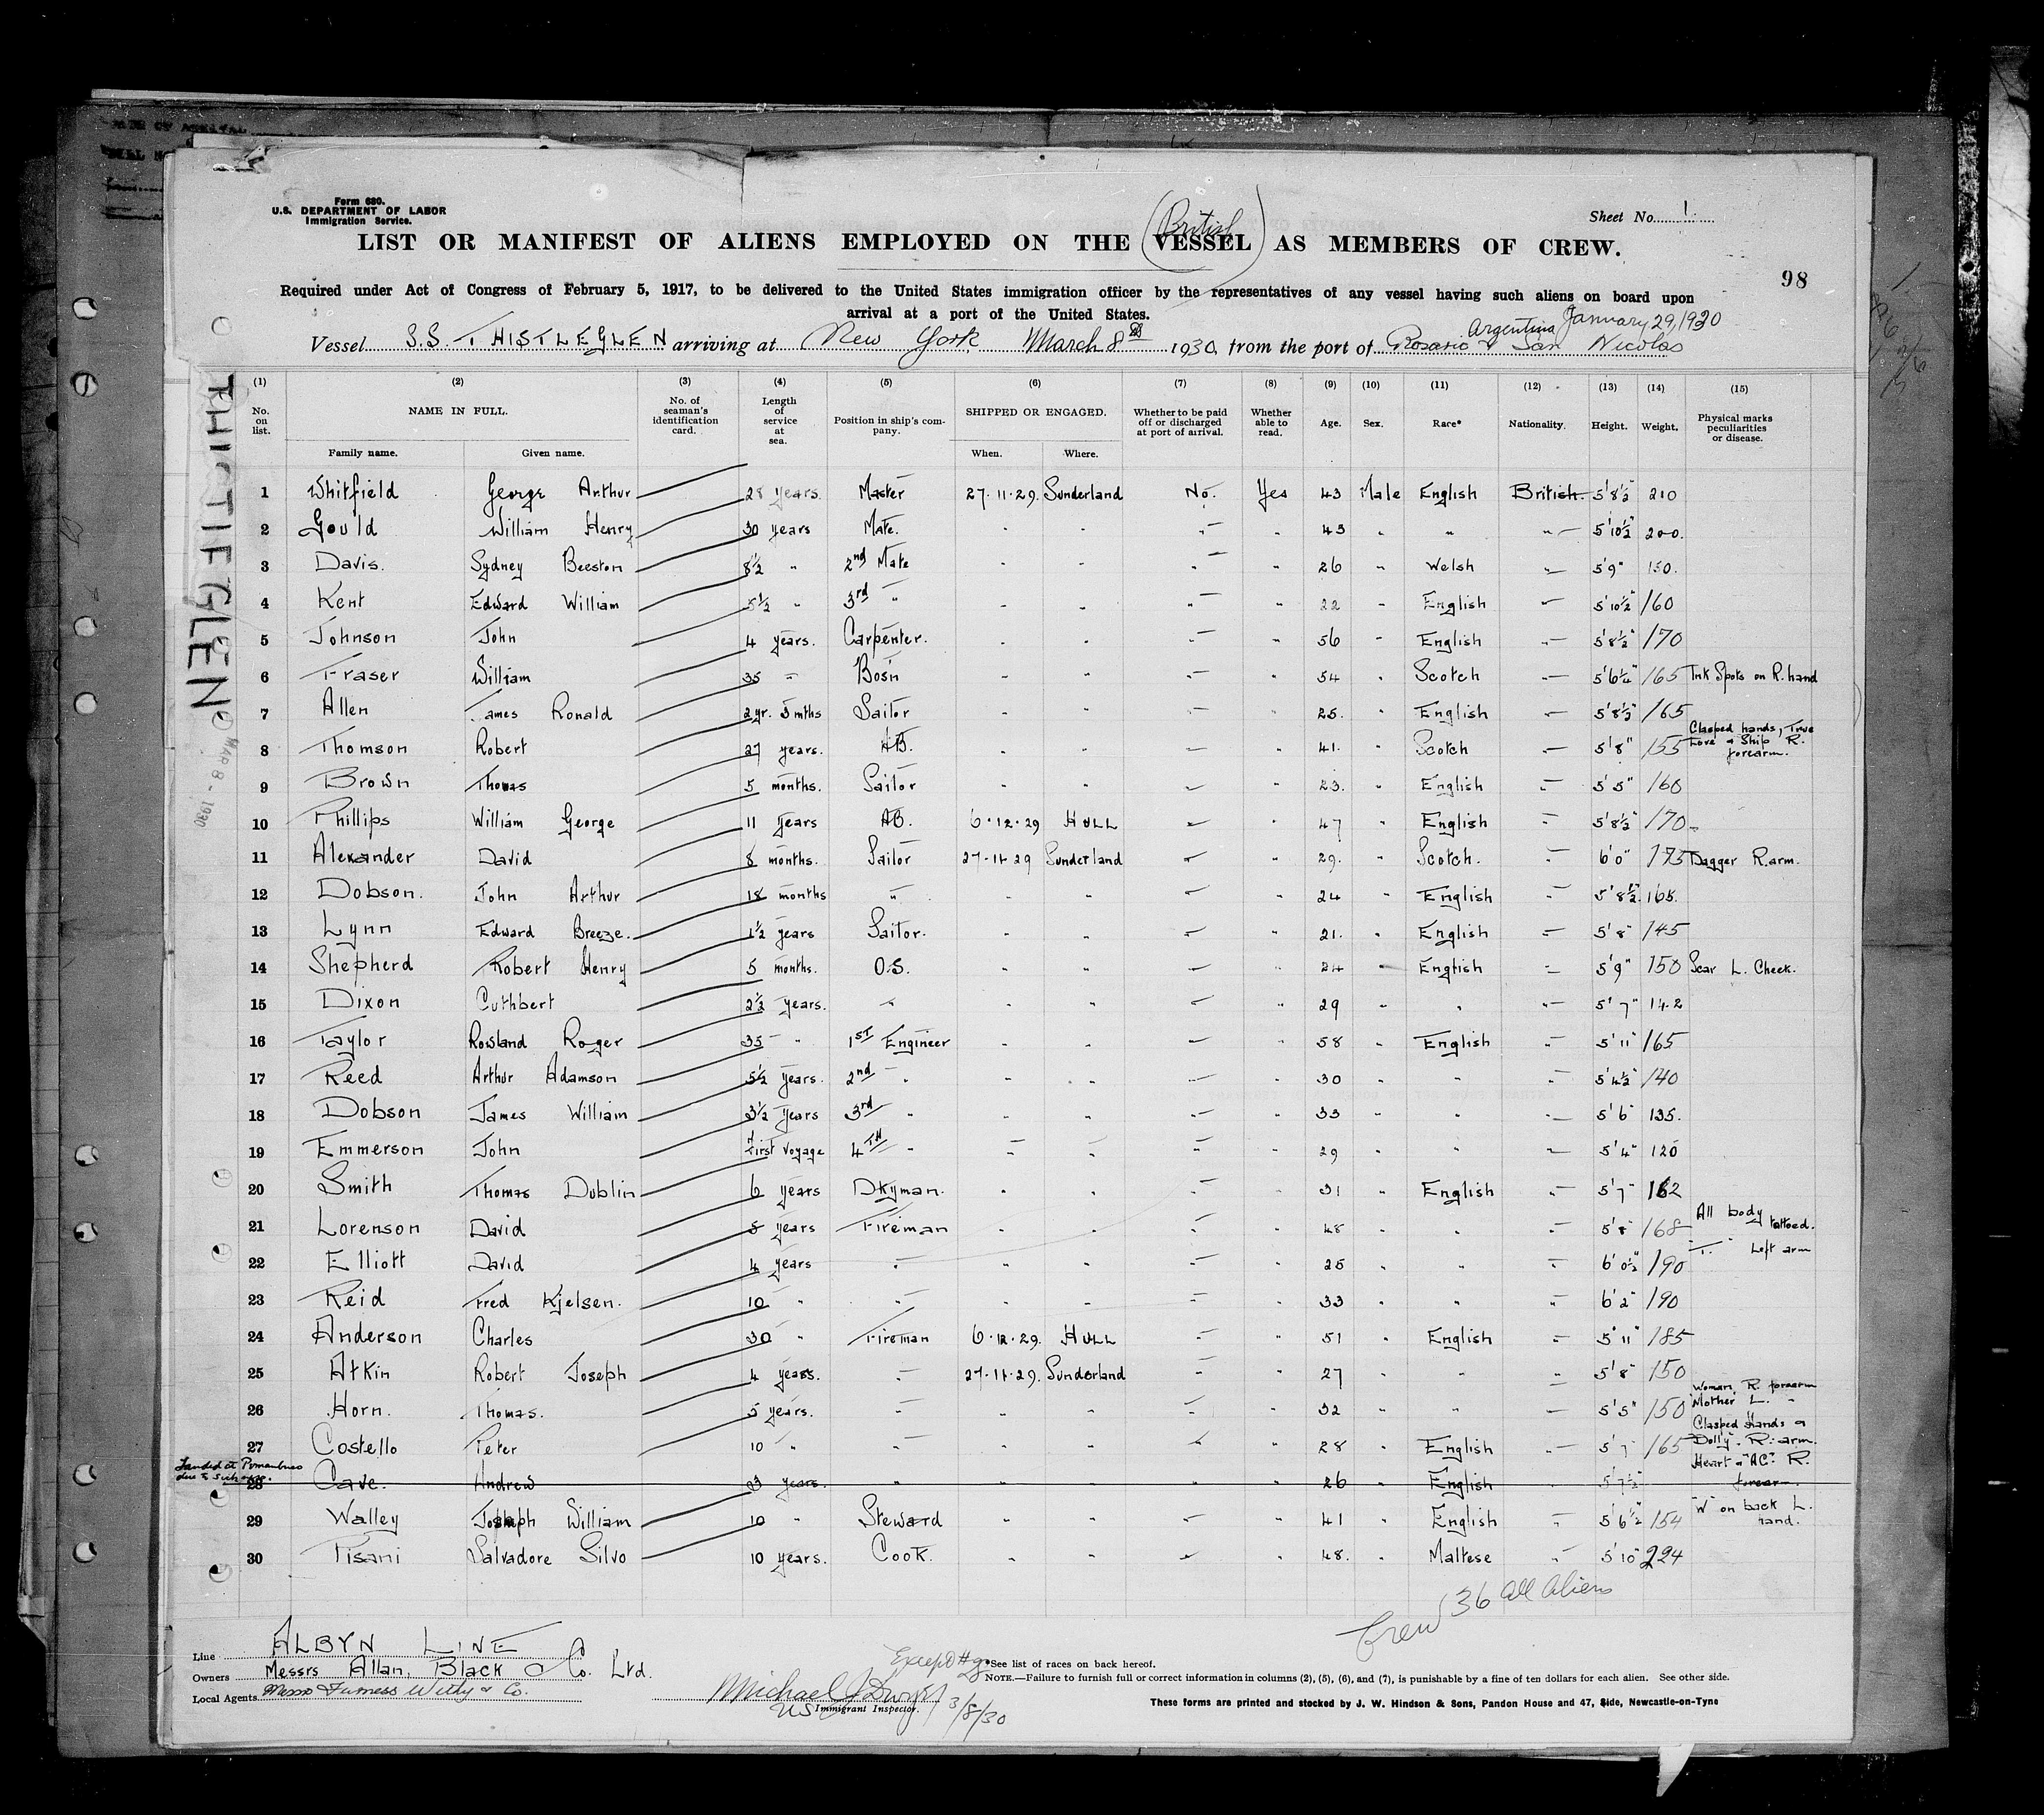 Form 680.
U.S. DEPARTMENT OF LABOR
Immigration Service.
Sheet No. 1.
(British)
LIST OR MANIFEST OF ALIENS EMPLOYED ON THE VESSEL AS MEMBERS OF CREW.
98
Required under Act of Congress of February 5, 1917, to be delivered to the United States immigration officer by the representatives of any vessel having such aliens on board upon
arrival at a port of the United States.
Argentina January 29, 1930
Vessel S.S THISTLEGLEN arriving at New York March 8th 1930, from the port of Rosario & San Nicolas
(1) (2) (3) (4) (5) (6) (7) (8) (9) (10) (11) (12) (13) (14) (15)
No. on list. NAME IN FULL. Family name. Given name. No. of seaman's identification card. Length of service at sea. Position in ship's company. SHIPPED OR ENGAGED. When. Where. Whether to be paid off or discharged at port of arrival. Whether able to read. Age. Sex. Race* Nationality. Height. Weight. Physical marks peculiarities or disease.
THISTLEGLEN
MAR 8 - 1930
1 Whitfield George Arthur 28 years. Master 27.11.29. Sunderland No. Yes 43 Male English British. 5'8½" 210
2 Gould William Henry 30 years Mate. " " " " 43 " " " 5'10½ 200.
3 Davis. Sydney Beeston 8½ " 2nd Mate " " " " 26 " Welsh " 5'9" 150.
4 Kent Edward William 5½ " 3rd " " " " " 22 " English " 5'10½" 160
5 Johnson John 4 years. Carpenter. " " " " 56 " English " 5'8½" 170
6 Fraser William 35 " Bosn " " " " 54 " Scotch " 5'6¼" 165 Ink Spots on R. hand
7 Allen James Ronald 2yr. 3 mths Sailor " " " " 25. " English " 5'8½" 165
8 Thomson Robert 27 years. AB. " " " " 41. " Scotch " 5'8" 155 Clasped hands, True Love & Ship R. forearm.
9 Brown Thomas 5 months. Sailor " " " " 23. " English " 5'5" 160
10 Phillips William George 11 years AB. 6.12.29 HULL " " 47 " English " 5'8½" 170
11 Alexander David 8 months. Sailor 27.11.29 Sunderland " " 29. " Scotch. " 6'0" 175 Dagger R. arm.
12 Dobson. John Arthur 18 months " " " " " 24 " English " 5'8½" 165.
13 Lynn Edward Breeze. 1½ years Sailor. " " " " 21. " English " 5'8" 145
14 Shepherd Robert Henry 5 months. O.S. " " " " 24 " English " 5'9" 150 Scar L. Cheek.
15 Dixon Cuthbert 2½ years. " " " " " 29 " " " 5'7" 142
16 Taylor Rowland Roger 35 " 1ST Engineer " " " " 58 " English " 5'11" 165
17 Reed Arthur Adamson 5½ years. 2nd " " " " " 30 " " " 5'4½" 140
18 Dobson James William 3½ years 3rd " " " " " 33 " " " 5'6" 135.
19 Emmerson John First voyage 4TH " " " " " 29 " " " 5'4" 120
20 Smith Thomas Dublin 6 years Dkyman. " " " " 31 " English " 5'7" 162
21 Lorenson David 5 years Fireman " " " " 48 " " " 5'8" 168 All body tattoed.
22 Elliott David 4 years " " " " " 25 " " " 6'0½" 190 " T. " Left arm
23 Reid Fred Kjelsen. 10 " " " " " " 33 " " " 6'2" 190
24 Anderson Charles 30 " Fireman 6.12.29. HULL " " 51 " English " 5'11" 185
25 Atkin Robert Joseph 4 years. " 27.11.29. Sunderland " " 27 " " " 5'8" 150
26 Horn. Thomas. 5 years. " " " " " 32 " " " 5'5" 150 Woman, R. forearm Mother L. "
27 Costello Peter 10 " " " " " " 28 " English " 5'7" 165 Clasped Hands & "Dolly". R. arm.
Landed at Pernambuco due to sickness.
28 Cave. Andrew 3 years. " " " " " 26 " English " 5'7½" Heart & "AC" R. forearm.
29 Walley Joseph William 10 " Steward " " " " 41 " English " 5'6½" 154 "W" on back L. hand.
30 Pisani Salvadore Silvo 10 years. Cook. " " " " 48. " Maltese " 5'10" 224
Crew 36 all aliens
Line ALBYN LINE
Owners Messrs Allan, Black & Co. Ltd.
Local Agents Messrs Furness Withy & Co.
Except #28
Michael J Dwyer
US Immigrant Inspector. 3/8/30
*See list of races on back hereof.
NOTE.—Failure to furnish full or correct information in columns (2), (5), (6), and (7), is punishable by a fine of ten dollars for each alien. See other side.
These forms are printed and stocked by J. W. Hindson & Sons, Pandon House and 47, Side, Newcastle-on-Tyne